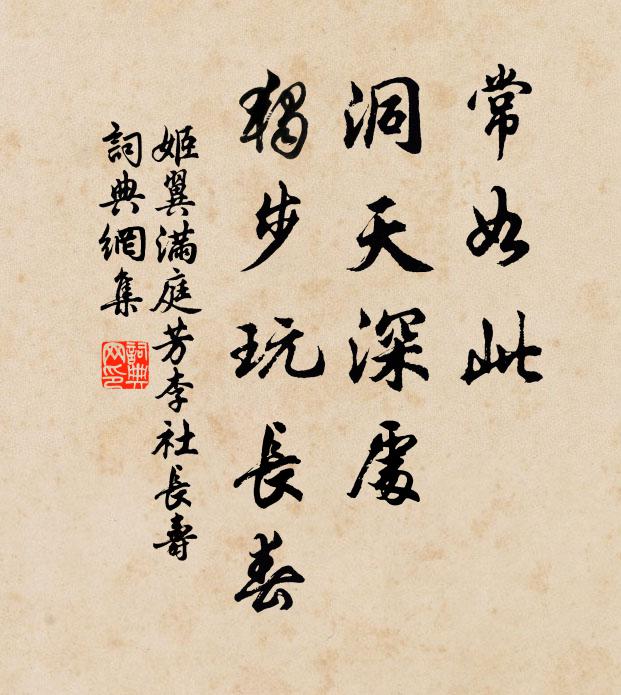 常如此
洞天深處
獨步玩長春
姬翼滿庭芳李社長壽
詞典網集
詞典网印